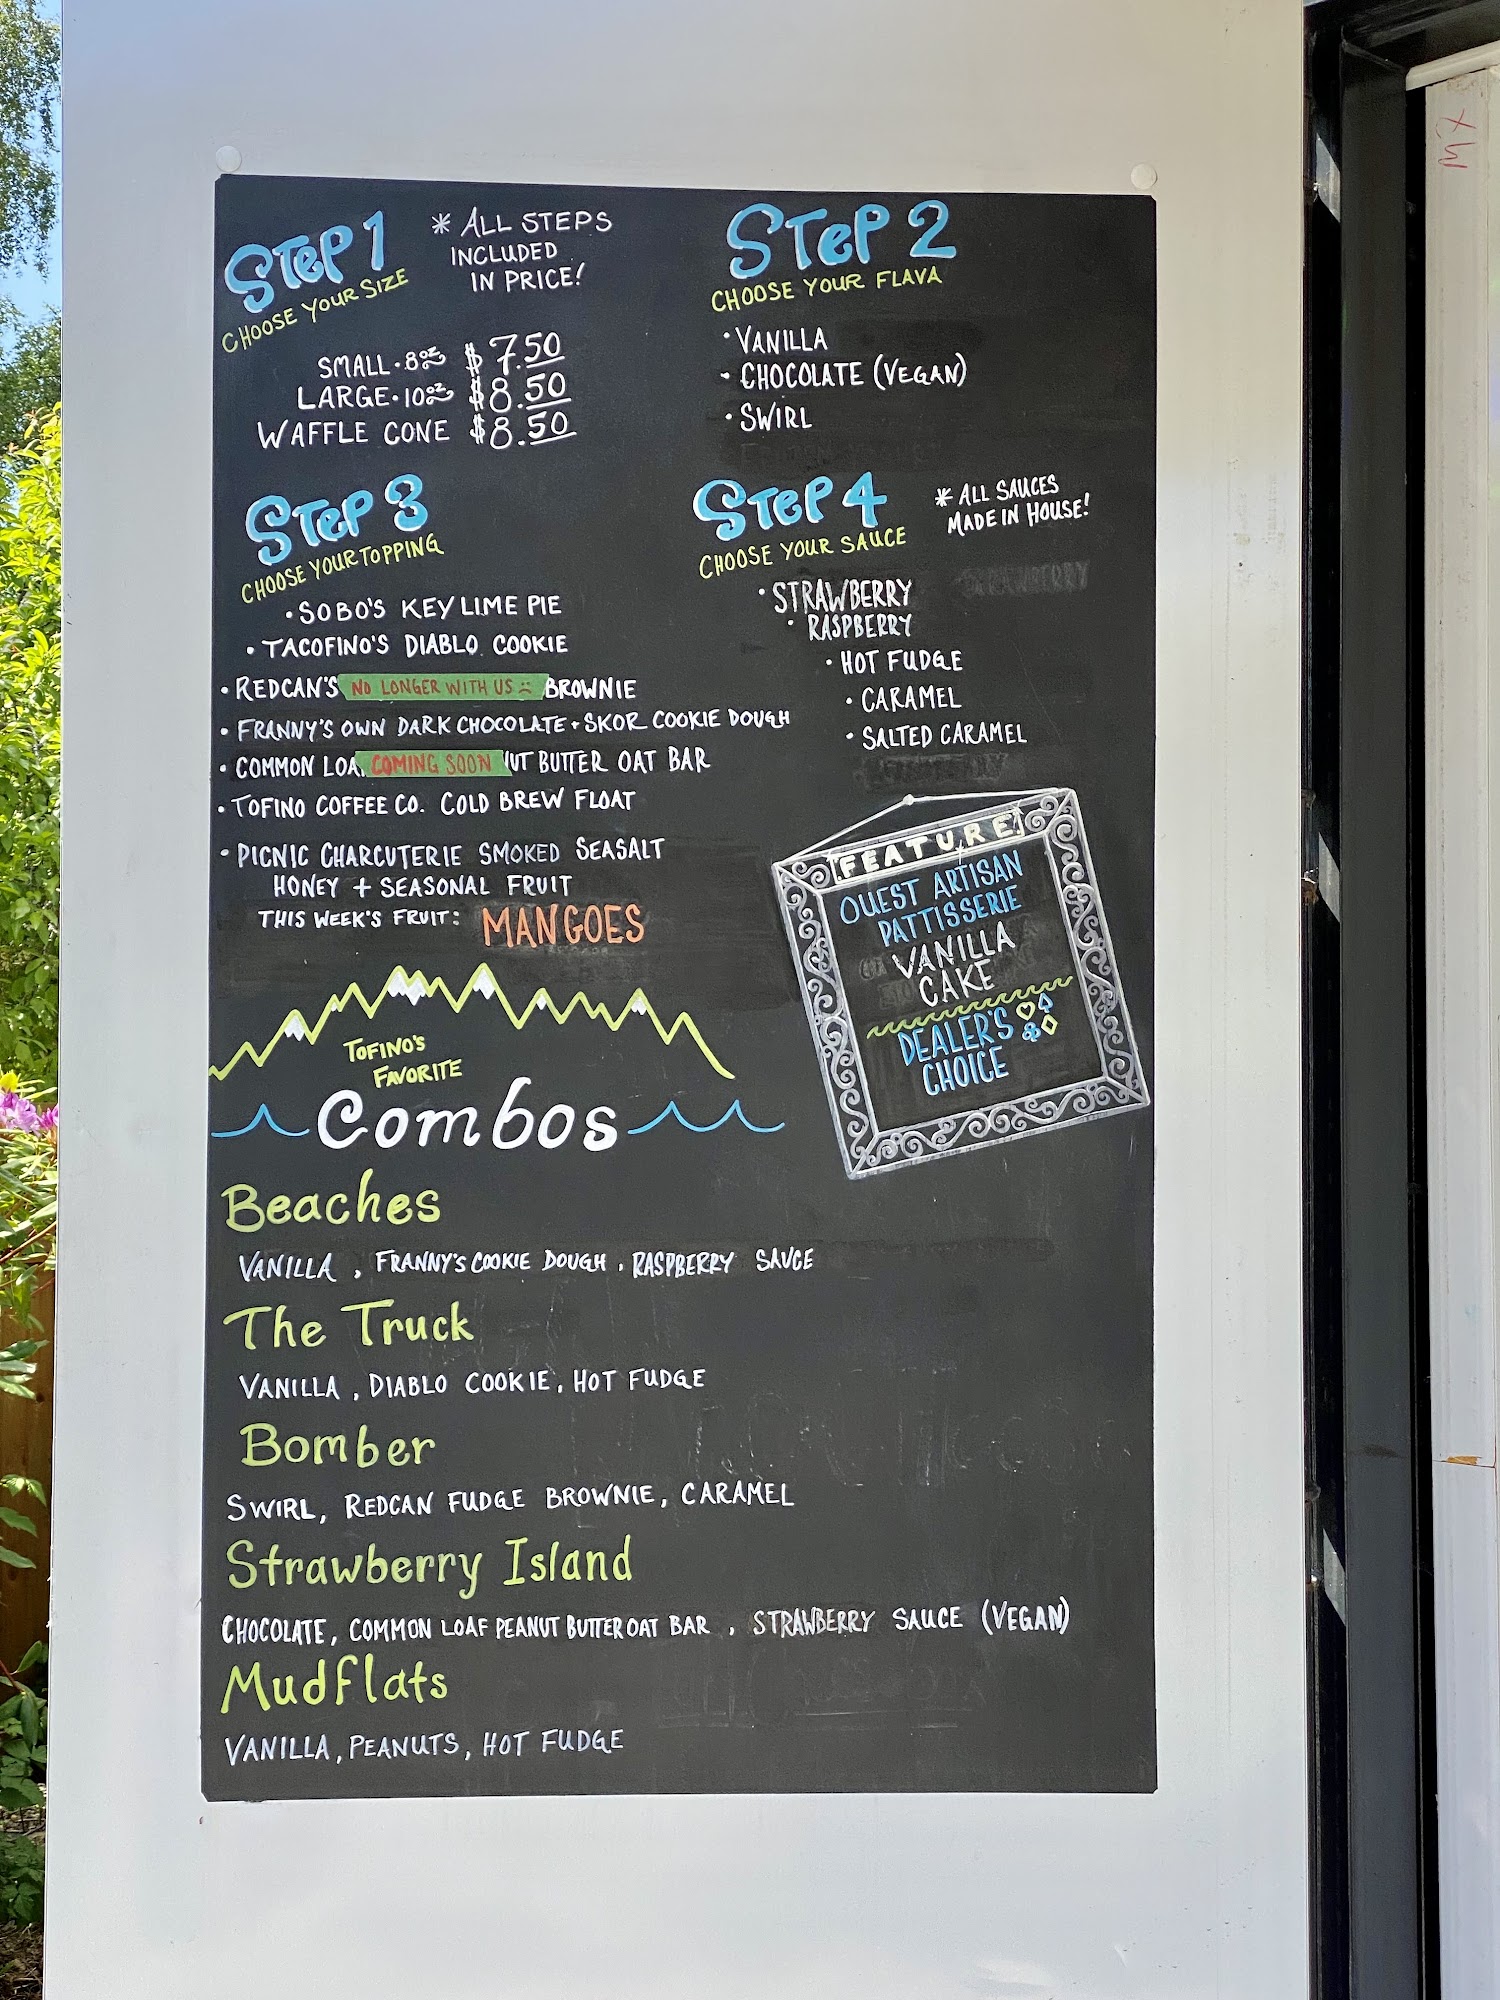 STEP 1
CHOOSE YOUR SIZE
* ALL STEPS
INCLUDED
IN PRICE!
SMALL · 8oz $7.50
LARGE · 10oz $8.50
WAFFLE CONE $8.50
STEP 2
CHOOSE YOUR FLAVA
· VANILLA
· CHOCOLATE (VEGAN)
· SWIRL
STEP 3
CHOOSE YOUR TOPPING
· SOBO'S KEY LIME PIE
· TACOFINO'S DIABLO COOKIE
· REDCAN'S NO LONGER WITH US :( BROWNIE
· FRANNY'S OWN DARK CHOCOLATE + SKOR COOKIE DOUGH
· COMMON LOA COMING SOON UT BUTTER OAT BAR
· TOFINO COFFEE CO. COLD BREW FLOAT
· PICNIC CHARCUTERIE SMOKED SEASALT
HONEY + SEASONAL FRUIT
THIS WEEK'S FRUIT: MANGOES
STEP 4
CHOOSE YOUR SAUCE
* ALL SAUCES
MADE IN HOUSE!
· STRAWBERRY
· RASPBERRY
· HOT FUDGE
· CARAMEL
· SALTED CARAMEL
FEATURE
OUEST ARTISAN
PATTISSERIE
VANILLA
CAKE
DEALER'S
CHOICE
TOFINO'S
FAVORITE
Combos
Beaches
VANILLA, FRANNY'S COOKIE DOUGH, RASPBERRY SAUCE
The Truck
VANILLA, DIABLO COOKIE, HOT FUDGE
Bomber
SWIRL, REDCAN FUDGE BROWNIE, CARAMEL
Strawberry Island
CHOCOLATE, COMMON LOAF PEANUT BUTTER OAT BAR, STRAWBERRY SAUCE (VEGAN)
Mudflats
VANILLA, PEANUTS, HOT FUDGE